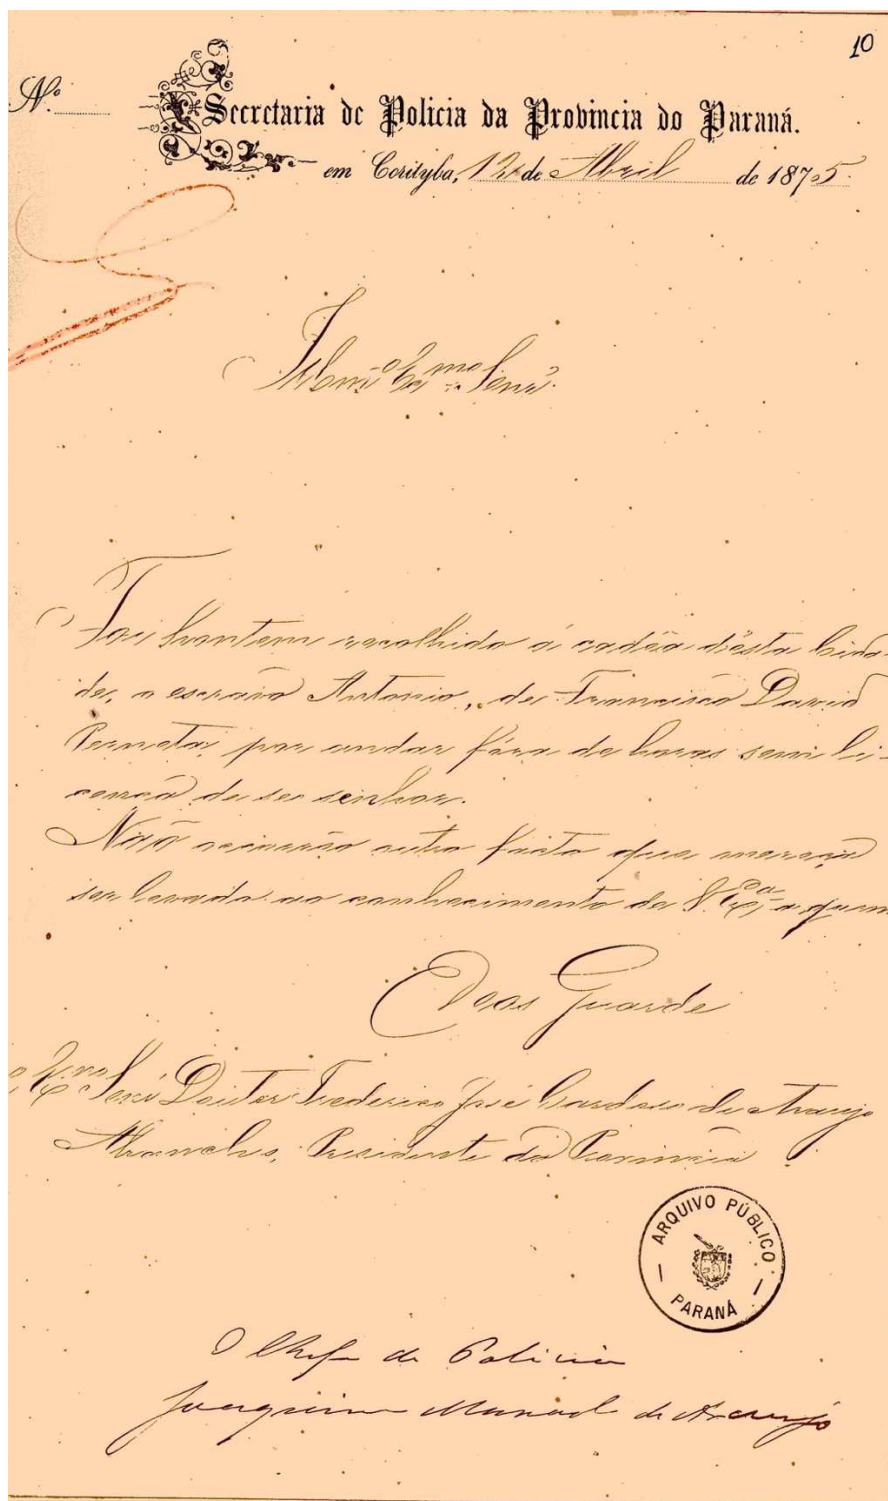 10
Nº
Secretaria de Policia da Provincia do Paraná.
em Corityba, 12 de Abril de 1875.
Illmº Exmo Senr.
Foi hontem recolhido á cadêa d'esta Cida-
de, o escravo Antonio, de Francisco David
Perneta, por andar fóra de horas sem li-
cença de seu senhor.
Não occorreo outro facto que mereça
ser levado ao conhecimento de V. Exª a quem
Deos Guarde
Exmo Senr Doutor Frederico José Cardoso de Araujo
Abranches, Presidente da Provincia
ARQUIVO PÚBLICO
PARANÁ
O Chefe de Policia
Joaquim Manoel de Araujo